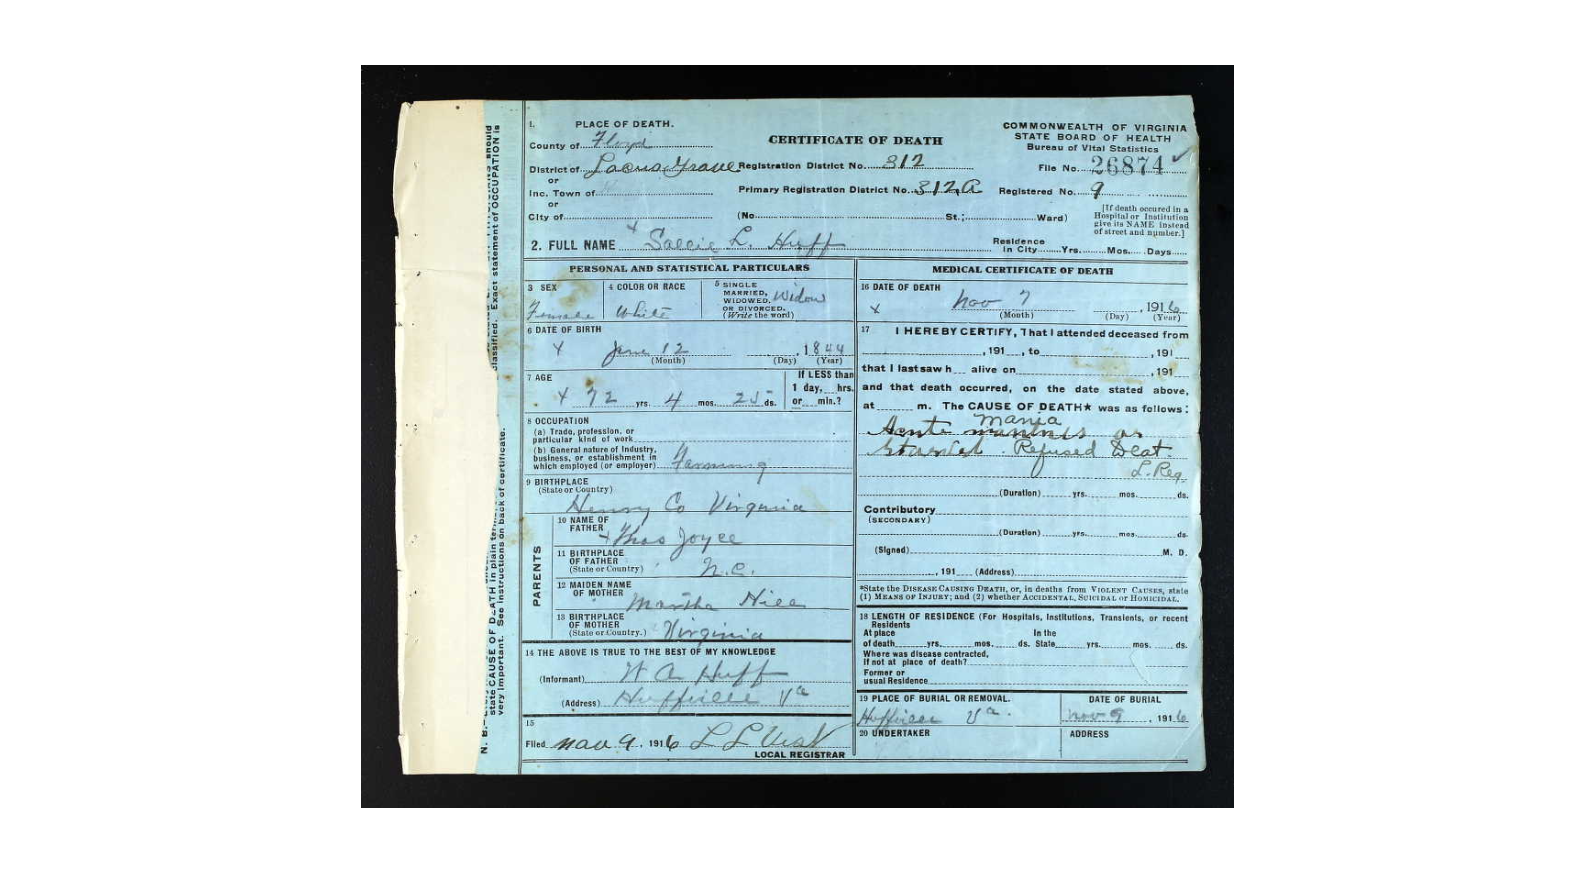 1. PLACE OF DEATH.
County of Floyd
District of Locus Grave
or
Inc. Town of
or
City of
CERTIFICATE OF DEATH
Registration District No. 312
Primary Registration District No. 312A
(No. St.; Ward)
COMMONWEALTH OF VIRGINIA
STATE BOARD OF HEALTH
Bureau of Vital Statistics
File No. 26874
Registered No. 9
[If death occured in a
Hospital or Institution
give its NAME instead
of street and number.]
2. FULL NAME Sallie L. Huff
Residence
in City Yrs. Mos. Days
PERSONAL AND STATISTICAL PARTICULARS
3 SEX
Female
4 COLOR OR RACE
White
5 SINGLE
MARRIED,
WIDOWED,
OR DIVORCED.
(Write the word)
Widow
6 DATE OF BIRTH
x June 12, 1844
(Month) (Day) (Year)
7 AGE
x 72 yrs. 4 mos. 25 ds.
If LESS than
1 day, hrs.
or min.?
8 OCCUPATION
(a) Trade, profession, or
particular kind of work
(b) General nature of Industry,
business, or establishment in
which employed (or employer) Farming
9 BIRTHPLACE
(State or Country)
Henry Co Virginia
PARENTS
10 NAME OF
FATHER
x Thos Joyce
11 BIRTHPLACE
OF FATHER
(State or Country) N.C.
12 MAIDEN NAME
OF MOTHER
Martha Hill
13 BIRTHPLACE
OF MOTHER
(State or Country.) Virginia
14 THE ABOVE IS TRUE TO THE BEST OF MY KNOWLEDGE
(Informant) W A Huff
(Address) Huffville Va
15
Filed Nov 9, 1916 L L Veal
LOCAL REGISTRAR
MEDICAL CERTIFICATE OF DEATH
16 DATE OF DEATH
x Nov 7, 1916
(Month) (Day) (Year)
17 I HEREBY CERTIFY, That I attended deceased from
, 191 , to , 191
that I last saw h alive on , 191
and that death occurred, on the date stated above,
at m. The CAUSE OF DEATH★ was as follows:
mania
Acute or
Starved. Refused
L. Reg.
(Duration) yrs. mos. ds.
Contributory
(SECONDARY)
(Duration) yrs. mos. ds.
(Signed) M. D.
, 191 (Address)
*State the DISEASE CAUSING DEATH, or, in deaths from VIOLENT CAUSES, state
(1) MEANS OF INJURY; and (2) whether ACCIDENTAL, SUICIDAL or HOMICIDAL.
18 LENGTH OF RESIDENCE (For Hospitals, Institutions, Transients, or recent
Residents
At place In the
of death yrs. mos. ds. State yrs. mos. ds.
Where was disease contracted,
If not at place of death?
Former or
usual Residence
19 PLACE OF BURIAL OR REMOVAL.
Huffville Va.
DATE OF BURIAL
Nov 9, 1916
20 UNDERTAKER
ADDRESS
should
Exact statement of OCCUPATION is
classified.
state CAUSE OF DEATH in plain
very important. See instructions on back of certificate.
N. B.